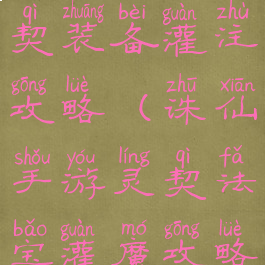 qì zhuāng bèi guàn zhù
契装备灌注
gōng lüè zhū xiān
攻略（诛仙
shǒu yóu líng qì fǎ
手游灵契法
bǎo guàn mó gōng lüè
宝灌魔攻略